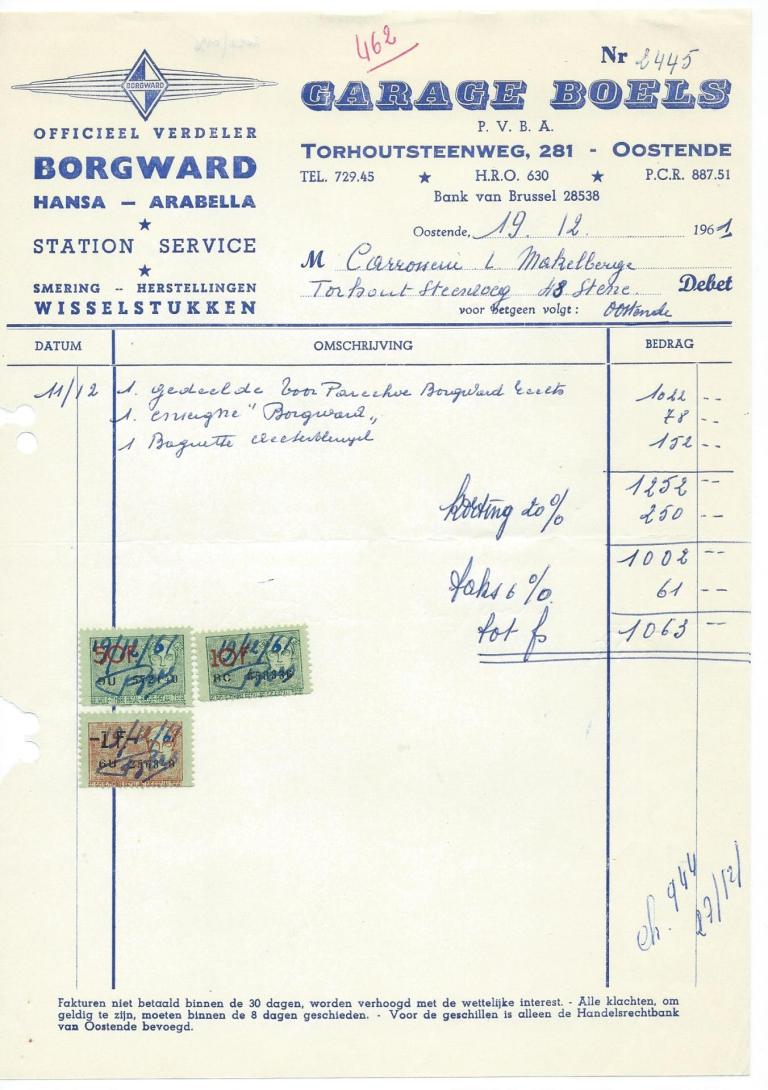 462
Nr 2445
BORGWARD
GARAGE BOELS
P. V. B. A.
OFFICIEEL VERDELER
BORGWARD
HANSA — ARABELLA
★
STATION SERVICE
★
SMERING -- HERSTELLINGEN
WISSELSTUKKEN
TORHOUTSTEENWEG, 281 - OOSTENDE
TEL. 729.45 ★ H.R.O. 630 ★ P.C.R. 887.51
Bank van Brussel 28538
Oostende, 19. 12. 1961
M Carrosserie L Makelberge
Torhout Steenweg 48 Stene. Debet
voor hetgeen volgt : Oostende
DATUM OMSCHRIJVING BEDRAG
11/12 1. gedeelde voor Parechoc Borgward 1022 --
1. enseigne "Borgward" 78 --
1 Baguette 152 --
1252 --
korting 20% 250 --
1002 --
taks 6% 61 --
tot fs 1063 --
50F 19/12/61
10F 19/12/61
1F 19/12/61
ch. 944
27/12/
Fakturen niet betaald binnen de 30 dagen, worden verhoogd met de wettelijke interest. - Alle klachten, om
geldig te zijn, moeten binnen de 8 dagen geschieden. - Voor de geschillen is alleen de Handelsrechtbank
van Oostende bevoegd.